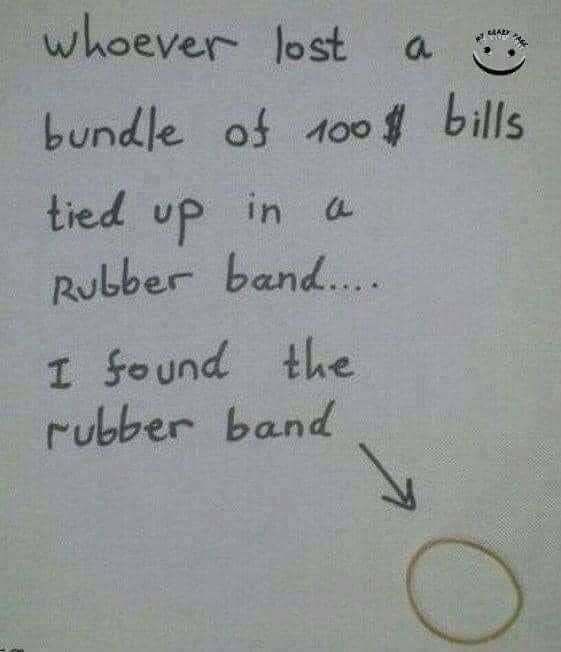 whoever lost a
bundle of 100$ bills
tied up in a
Rubber band....
I found the
rubber band